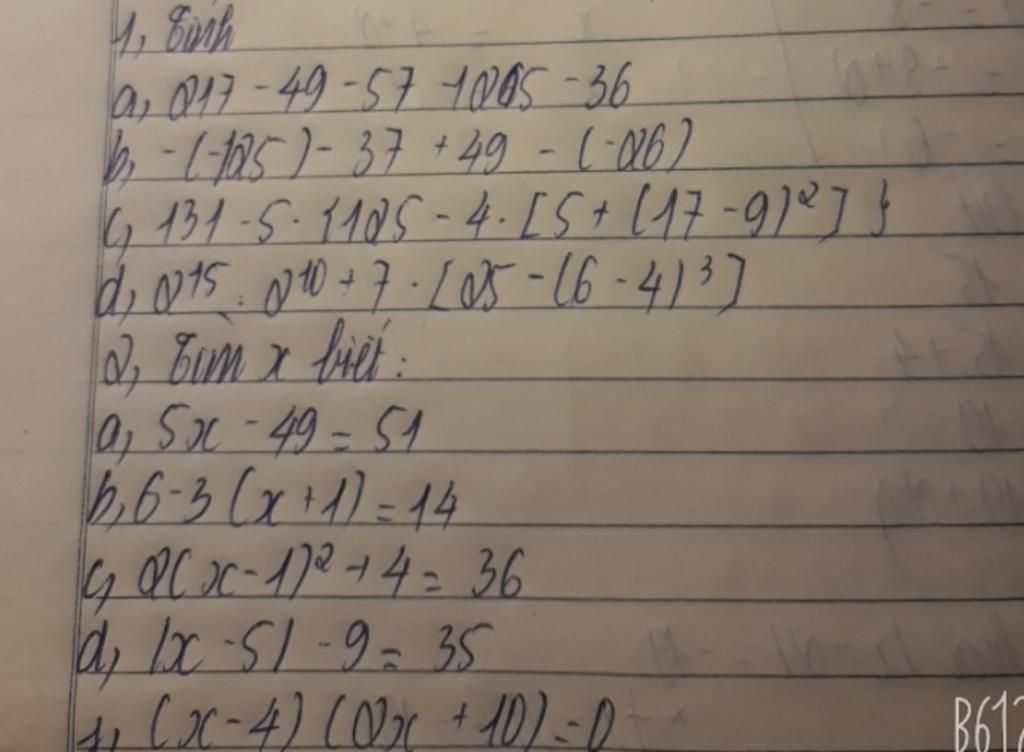 1, Tính
a, 217 - 49 - 57 - 1205 - 36
b, -(-125) - 37 + 49 - (-26)
c, 131 - 5 . {125 - 4 . [5 + (17 - 9)²] }
d, 2¹⁵ : 2¹⁰ + 7 . [25 - (6 - 4)³]
2, Tìm x biết :
a, 5x - 49 = 51
b, 6 - 3 (x + 1) = 14
c, 2(x - 1)² + 4 = 36
d, |x - 5| - 9 = 35
(x - 4) (2x + 10) = 0
B612